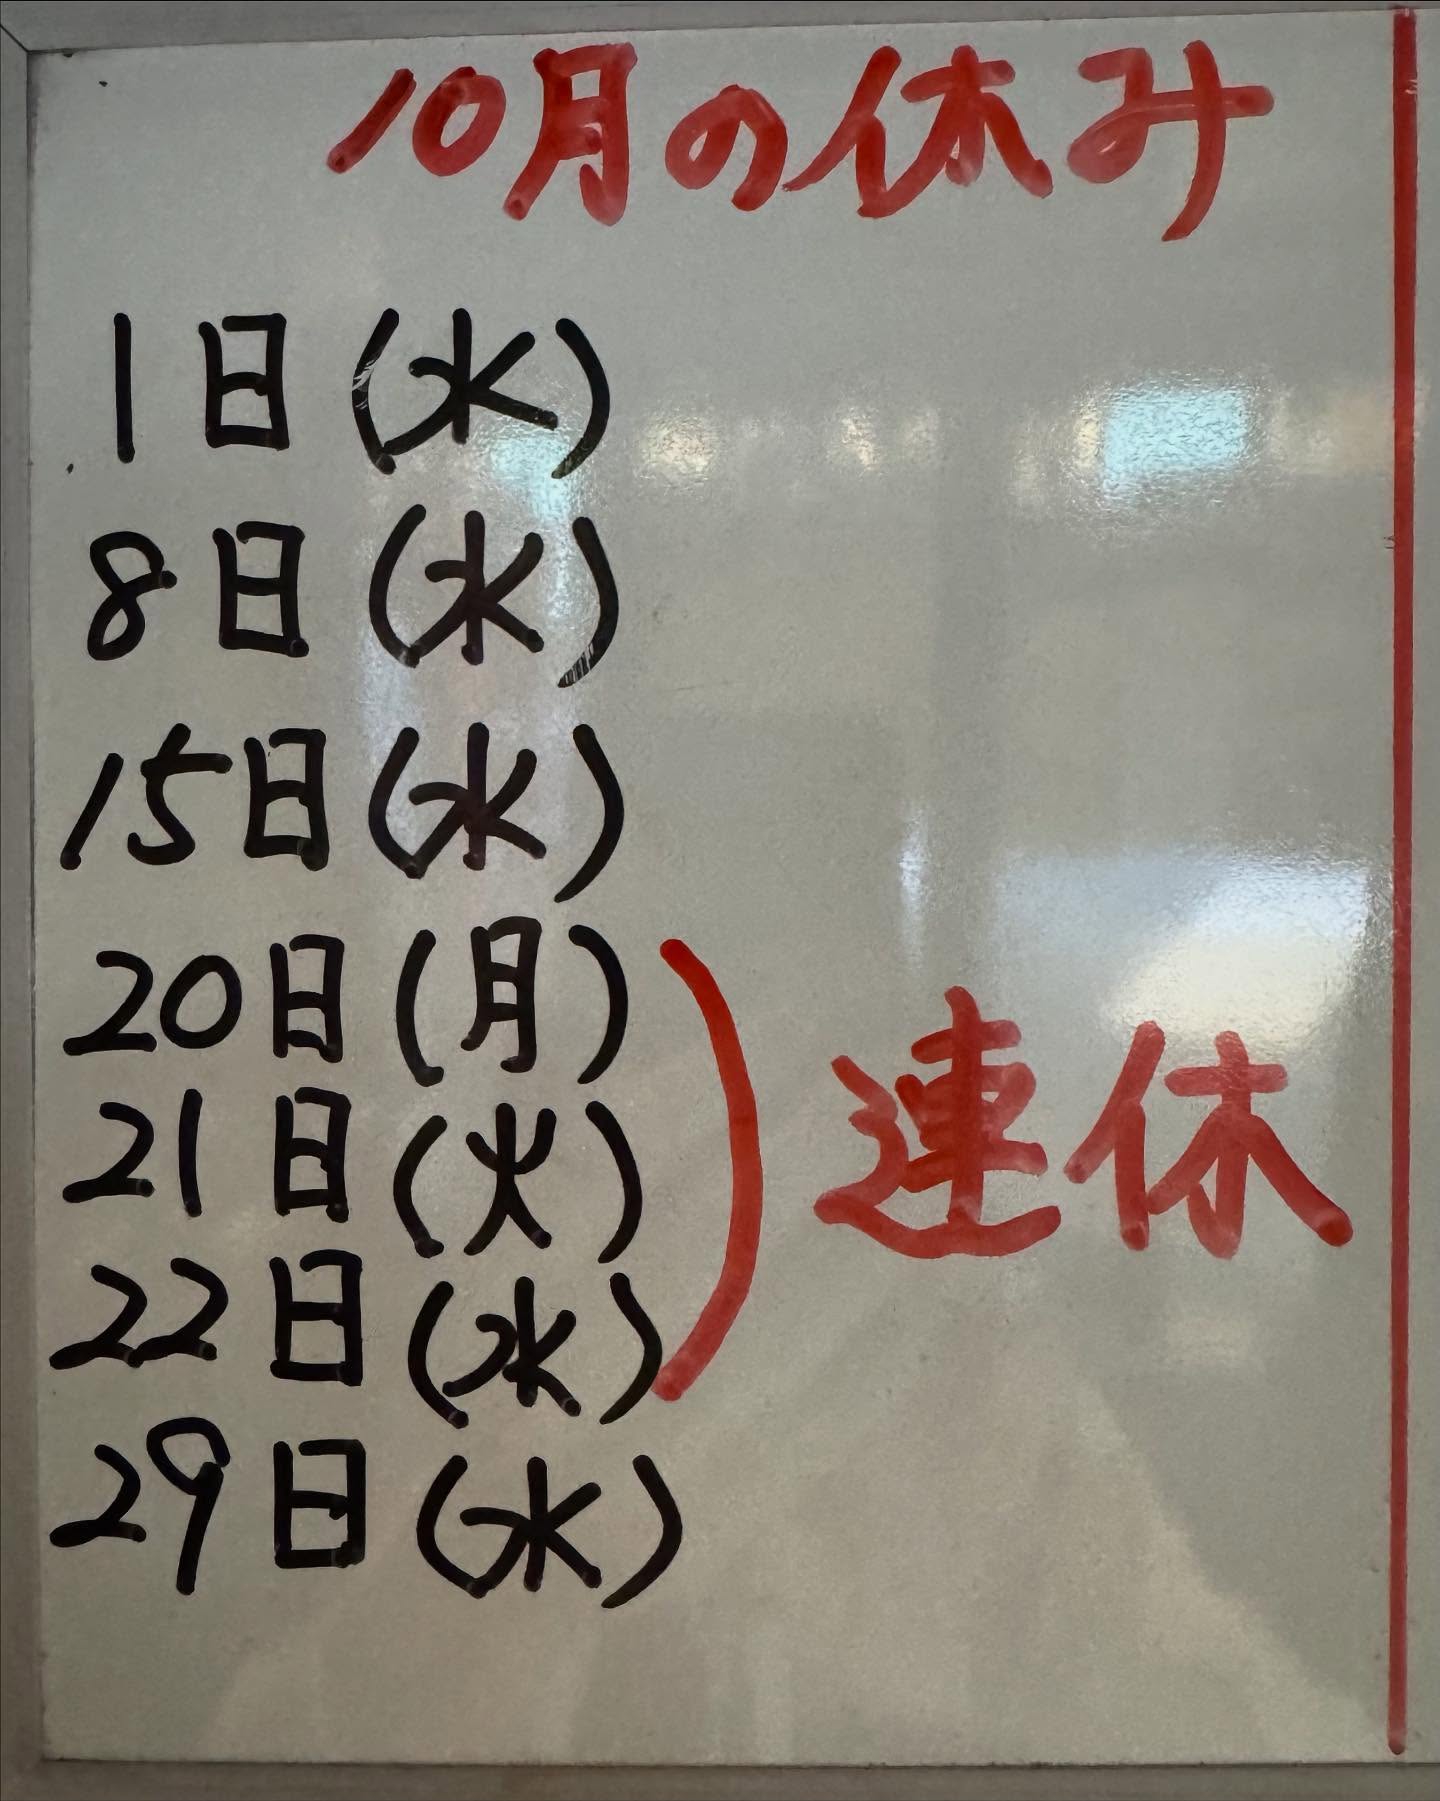 10月の休み
1日(水)
8日(水)
15日(水)
20日(月)
21日(火)
22日(水)
連休
29日(水)